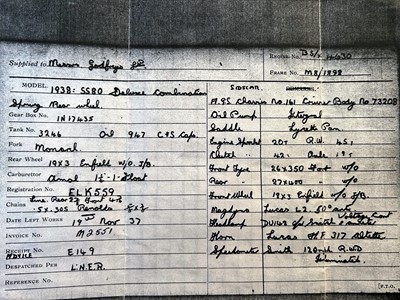 Supplied to Messrs Godfreys Ld.
ENGINE No. BS/X 4630
FRAME No. M8/1898
MODEL 1938: SS80 Deluxe Combination
Spring Rear wheel.
Gear Box No. 1N17435
Tank No. 3246 Oil 947 C+S Caps.
Fork Monarch.
Rear Wheel 19x3 Enfield W/O. J/B.
Carburettor Amal 1" Float
Registration No. ELK559
Chains Line Rear Front
.5x.305 Renolds
Date Left Works 19th Nov 37
Invoice No. M2551
Receipt No. E149
ADVICE
Despatched Per L.N.E.R.
Reference No.
SIDECAR.
A.95 Chassis No. 161 Cruiser Body No 73208
Oil Pump Integral
Saddle Lycett Pan
Engine Sprocket 20T R.W. 45T
Clutch 42 Axle
Front Tyre 26x350 Fort W/O
Rear 27x400 W/O
Front Wheel 19x3 Enfield W/O J/B.
Magdyno Lucas 50° Voltage Cont
Headlamp DU142 Smith
Horn Lucas H.F 317 Altette
Speedometer Smith 120mph R.W.D
Illuminated.
[P.T.O.